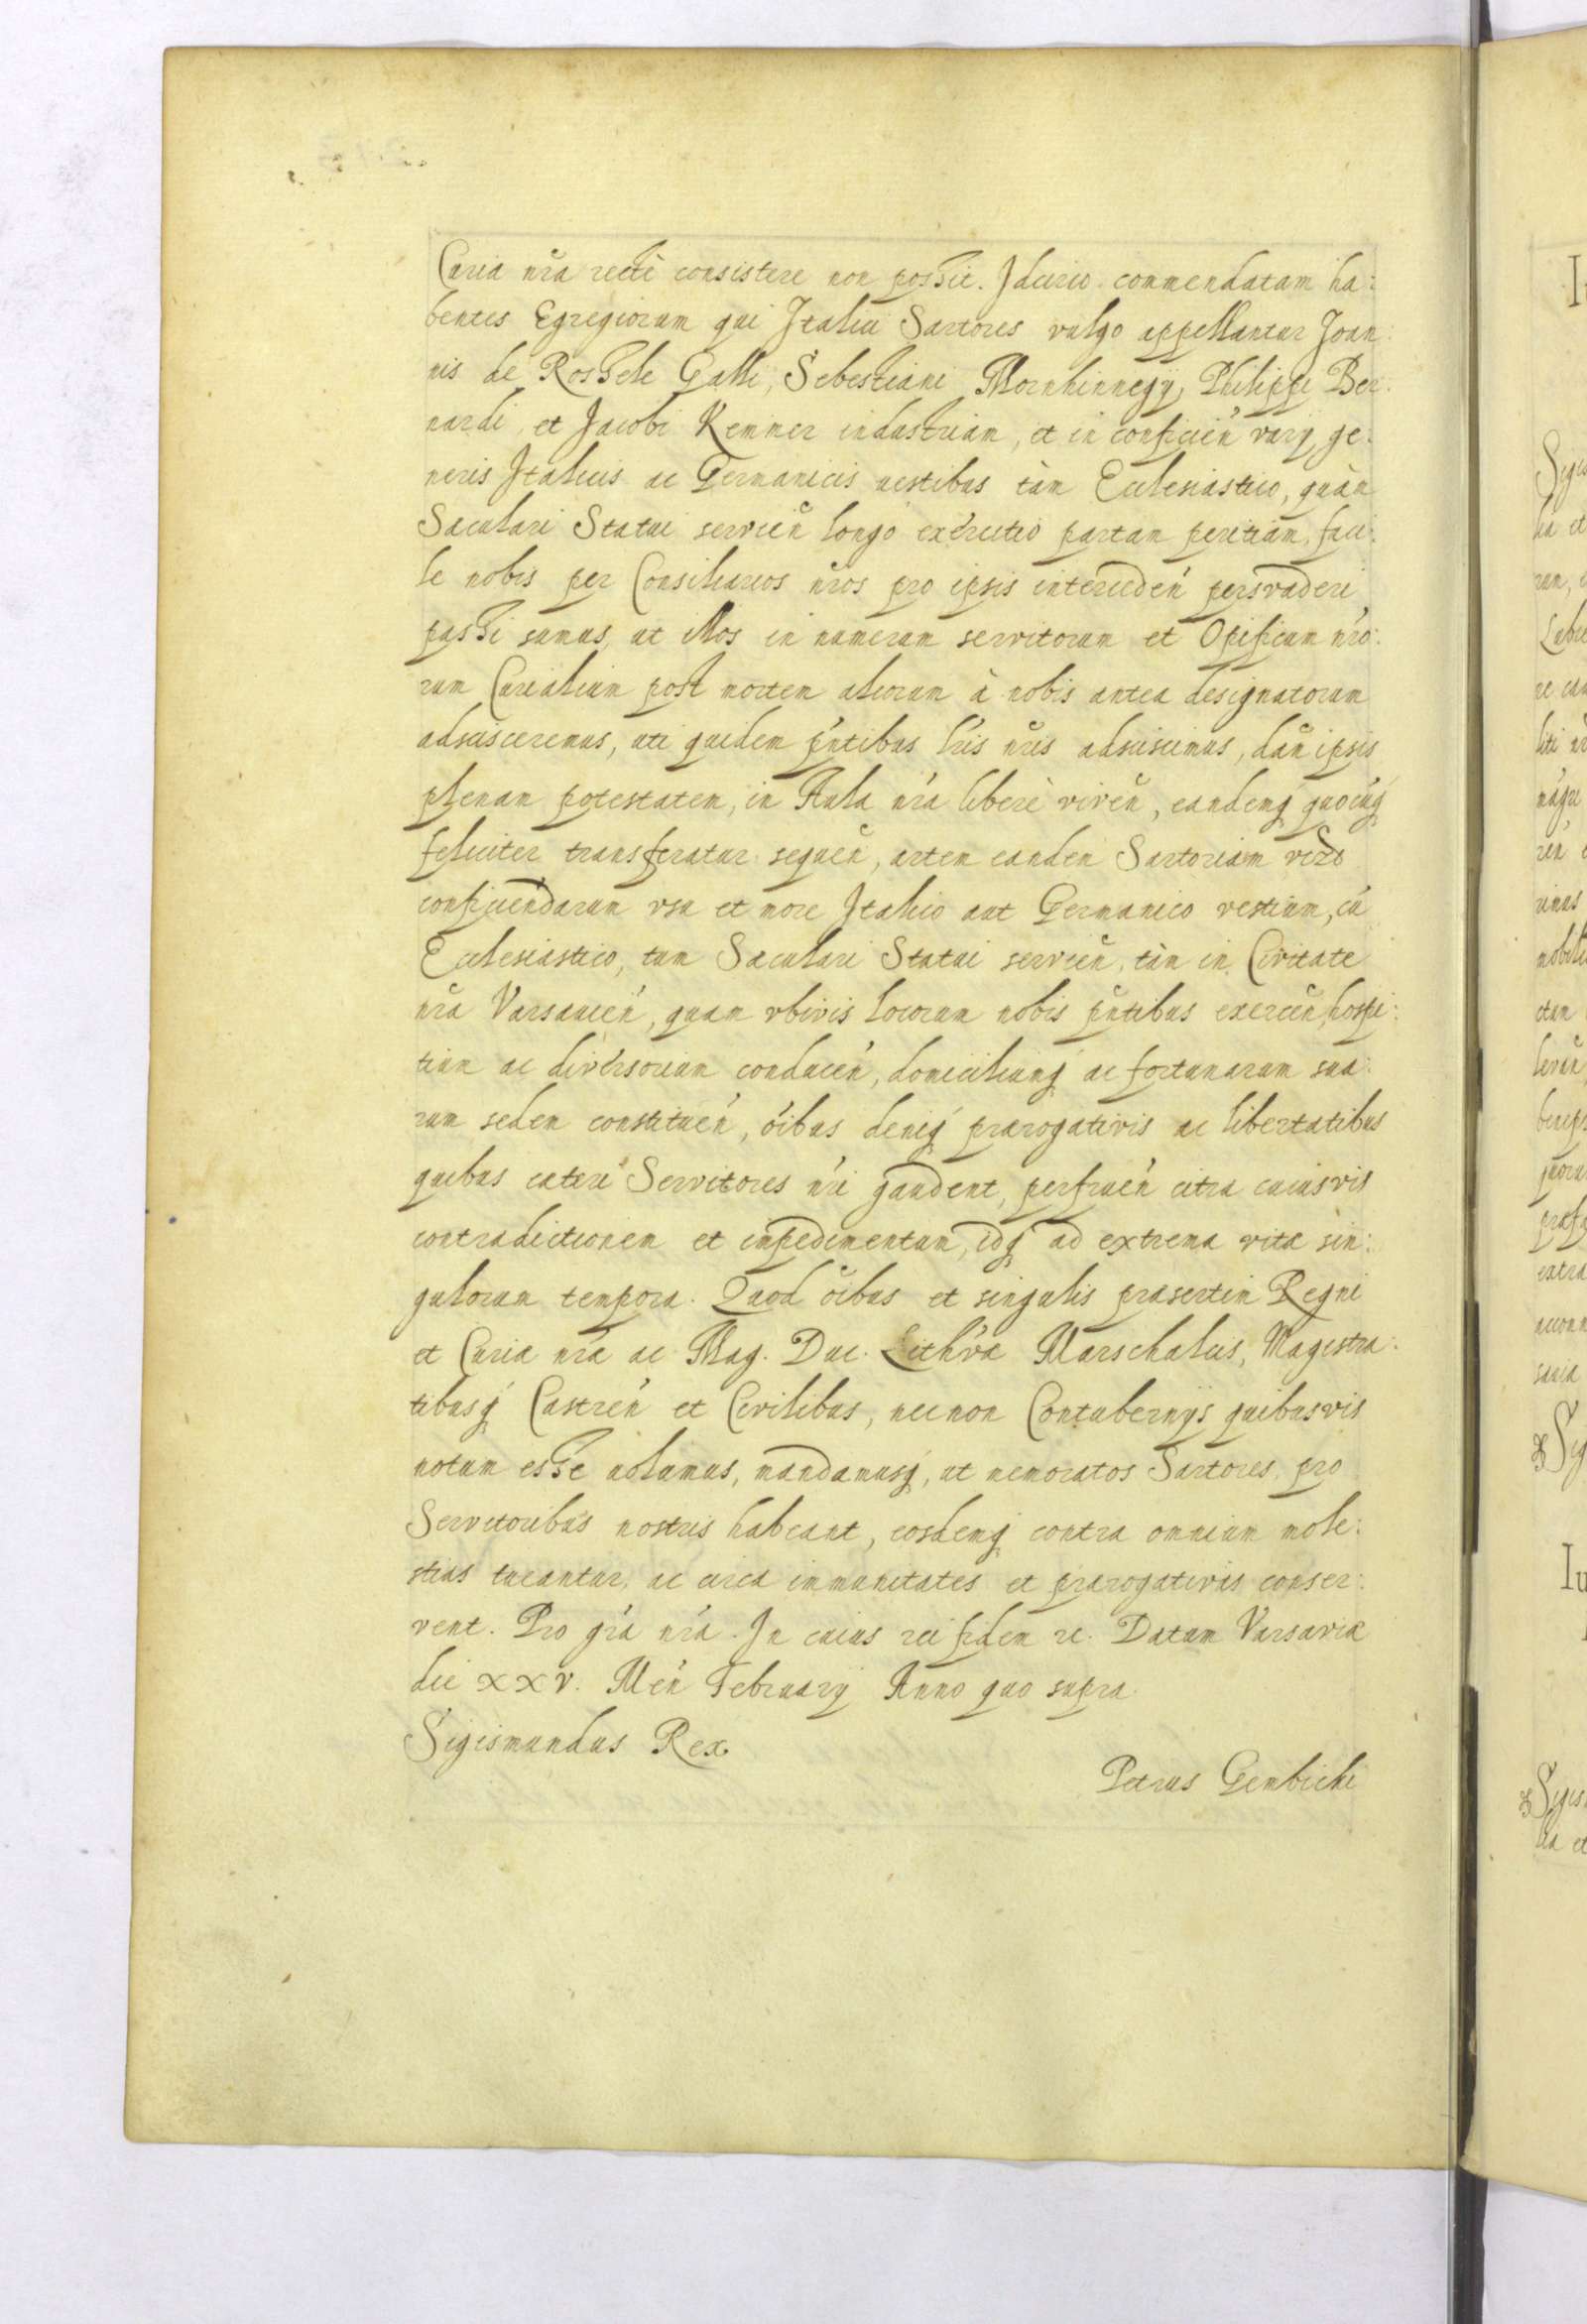 Curia nr̃a rectè consistere non possit. Idcirco commendatam ha:
bentes Egregiorum qui Italici Sartores vulgo appellantur Joan:
nis de Rossele Galli, Sebestiani Mornhinnegÿ, Philippi Ber:
nardi, et Jacobi Kemmer industriam, et in conficień varij ge:
neris Italicis ac Germanicis uestibus tàm Ecclesiastico, quàm
Sæculari Statui servień longo exercitio partam peritiam, faci:
le nobis per Consiliarios nr̃os pro ipsis intercedeń persvaderi
passi sumus, ut illos in numerum servitorum et Opificum nŕo:
rum Curialium post mortem aliorum à nobis antea designatorum
adscisceremus, uti quidem pńtibus lŕis nr̃is adsciscimus, dań ipsis
plenam potestatem, in Aula nŕa liberè viveń, eandemq́ quocúq́
feliciter transferatur sequeń, artem eandem Sartoriam verò
conficiendarum vsu et more Italico aut Germanico vestium, cú
Ecclesiastico, tum Sæculari Statui servień, tàm in Civitate
nr̃a Varsavień, quam vbivis locorum nobis pńtibus exerceń, hospi:
tium ac diversorium conduceń, domiciliumq́ ac fortunarum sua:
rum sedem constitueń, óibus deniq́ prærogativis ac libertatibus
quibus cæteri Servitores nŕi gaudent, perfrueń citra cuiusvis
contradictionem et impedimentum, idq́ ad extrema vitæ sin:
gulorum tempora. Quod óibus et singulis præsertim Regni
et Curiæ nŕæ ac Mag. Duc. Lithvæ Marschalcis, Magistra:
tibusq́ Castreń et Civilibus, necnon Contubernijs quibusvis
notum esse uolumus, mandamusq́, ut memoratos Sartores, pro
Servitoribus nostris habeant, eosdemq́ contra omnium mole:
stias tueantur, ac circa immunitates et prærogativas conser:
vent. Pro gŕa nŕa. In cuius rei fidem ꝛc. Datum Varsaviæ
die xxv. Meń Februarij Anno quo supra.
Sigismundus Rex
Petrus Gembicki